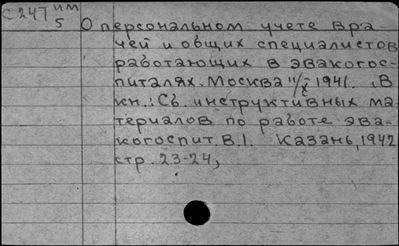 С247 им
5
О персональном учете вра
чей и общих специалистов
работающих в эвакогос-
питалях. Москва 11/X 1941. , В
кн.: Сб. инструктивных ма-
териалов по работе эва-
когоспит. В.1. Казань, 1942
стр. 23-24,